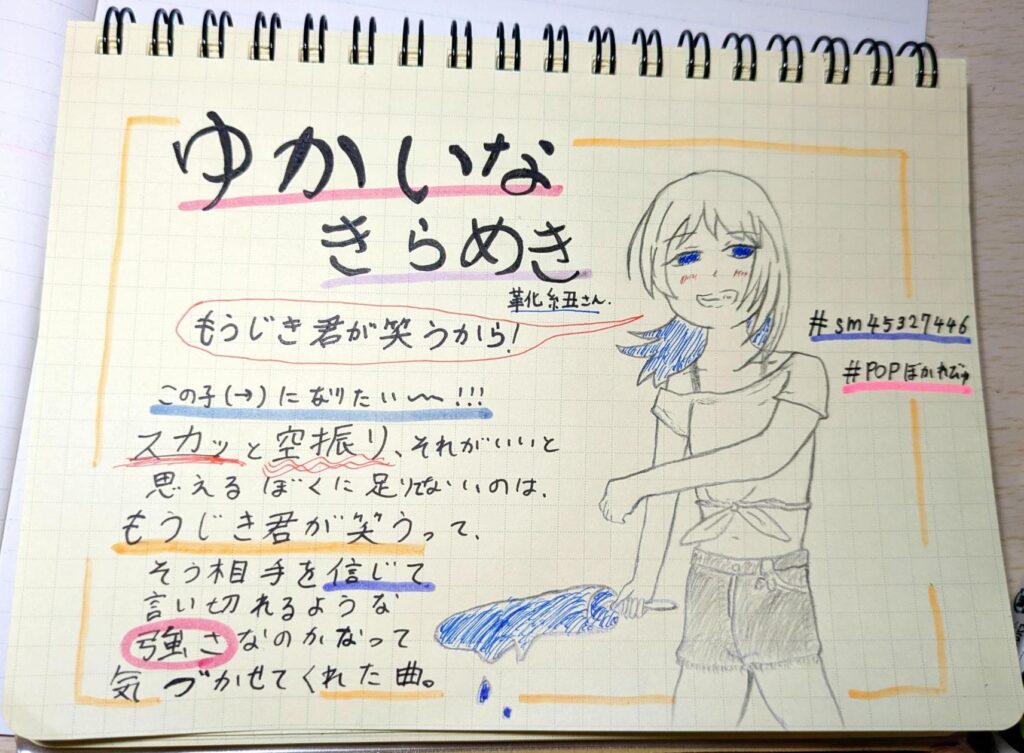 ゆかいな
きらめき
革化紐丑さん.
もうじき君が笑うから!
#sm45327446
#POPぼかれびゅ
この子(→)になりたい〜!!!
スカッと空振り、それがいいと
思えるぼくに足りてないのは、
もうじき君が笑うって、
そう相手を信じて
言い切れるような
強さなのかなって
気づかせてくれた曲。